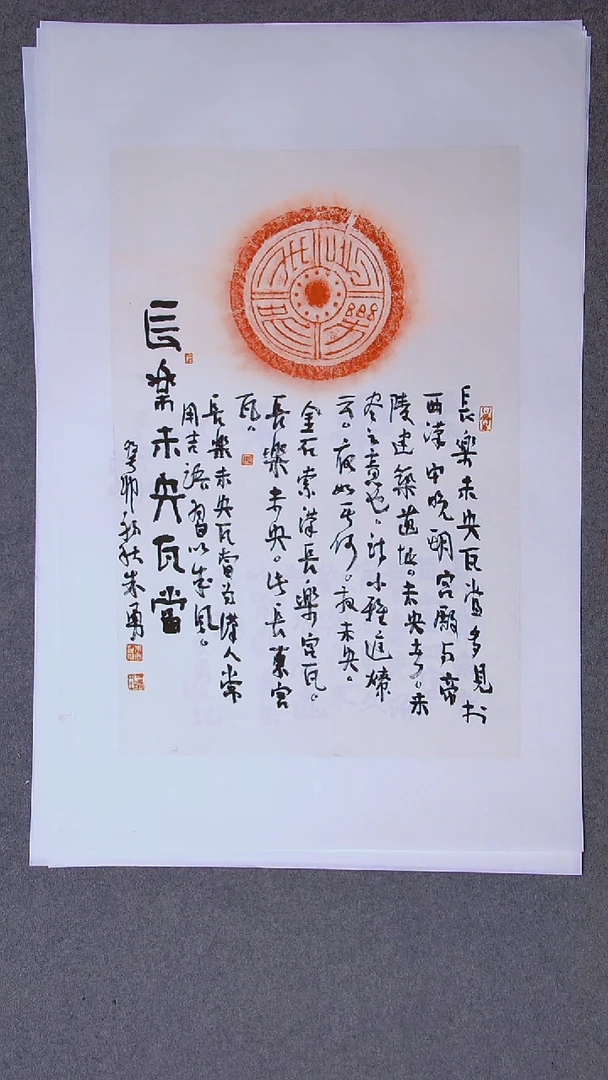 長樂未央瓦當多見於
西漢中晚期宮殿與帝
陵建築遺址。未央者。未
盡之意也。詩小雅庭燎
云。夜如其何。夜未央。
金石索漢長樂宮瓦。
長樂未央。此長樂宮
瓦。
長樂未央瓦當爲漢人常
用吉語習以成風。
長樂未央瓦當
癸卯秋朱勇